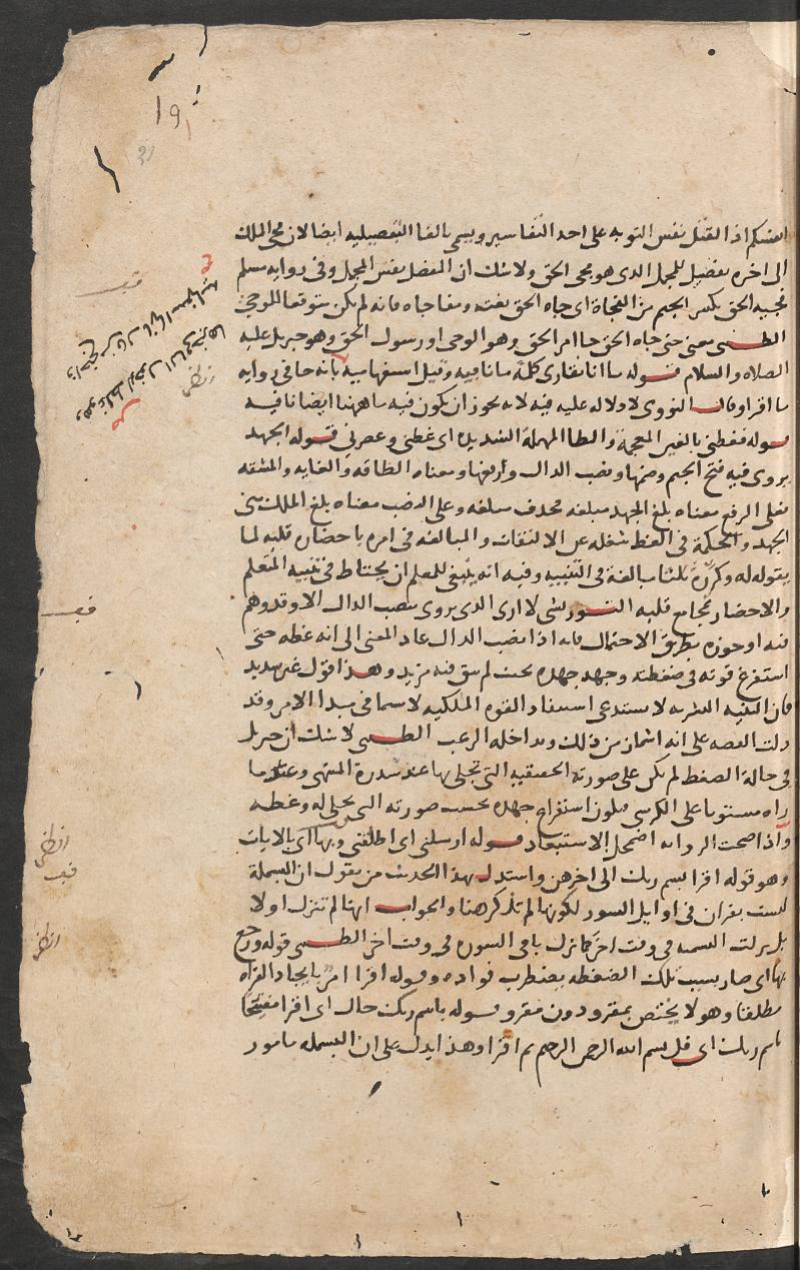 انفسكم اذ القتل نفس التوبه على احد التفاسير ويسمى بالفا التفصيليه ايضا لان مجى الملك
الى اخره تفصيل للمجمل الذى هو مجى الحق ولا شك ان المفصل نفس المجمل وفى روايه مسلم
فجيه الحق بكسر الجيم من الفجاة اى جاه الحق بغته ومفاجاه فانه لم يكن متوقعا للوحى
الطيبى معنى حتى جاه الحق جا امر الحق وهو الوحى او رسول الحق وهو جبريل عليه
الصلاه والسلام قوله ما انا بقارى كلمة ما نافيه وقيل استفهاميه بانه جا فى روايه
ما اقرا وقال النووى لا دلاله عليه فيه لانه يجوز ان يكون فيه ما ههنا ايضا نافيه
قوله فغطنى بالغين المعجمة والطا المهملة الشديده اى غطنى وعصرنى قوله الجهد
يروى فيه فتح الجيم وضمها ونصب الدال ورفعها ومعناه الطاقه والغايه والمشقه
فعلى الرفع معناه بلغ الجهد مبلغه فحذف مبلغه وعلى النصب معناه بلغ الملك منى
الجهد والحكمة فى الغط شغله عن الالتفات والمبالغه فى امره باحضار قلبه لما
يقوله له وكرره ثلثا مبالغة فى التنبيه وفيه انه ينبغى للمعلم ان يحتاط فى تنبيه المتعلم
والاحضار بمجامع قلبه التوربشتى لا ارى الذى يروى بنصب الدال الا وقد وهم
فيه او جوزه بطريق الاحتمال فانه اذا نصب الدال عاد المعنى الى انه غطه حتى
استفرغ قوته فى ضغطته وجهد جهده بحيث لم يبق فيه مزيد وهذا قول غير سديد
فان البنيه البشريه لا تستدعى استيفا القوه الملكيه لا سيما فى مبدا الامر وقد
دلت القصه على انه اشماز من ذلك وتداخله الرعب الطيبى لا شك ان جبريل
فى حالة الضغط لم يكن على صورته الحقيقيه التى تجلى بها عند سدرة المنتهى وعندما
راه مستويا على الكرسى فيكون استفراغ جهده بحسب صورته التى تجلى له وغطه
واذا صحت الروايه اضمحل الاستبعاد قوله ارسلنى اى اطلقنى وبها اى بالايات
وهو قوله اقرا بسم ربك الى اخرهن واستدل بهذا الحديث من يقول ان البسملة
ليست بقران فى اوايل السور لكونها لم تذكر هنا والجواب انها لم تنزل اولا
بل نزلت البسمله فى وقت اخر كما نزل باقى السوره فى وقت اخر الطيبى قوله ورجع
بها اى صار بسبب تلك الضغطه يضطرب فواده وقوله اقرا امر بايجاد القراه
مطلقا وهو لا يختص بمقرو دون مقرو قوله باسم ربك حال اى اقرا مفتتحا
باسم ربك اى قل بسم الله الرحمن الرحيم ثم اقرا وهذا يدل على ان البسمله مامور